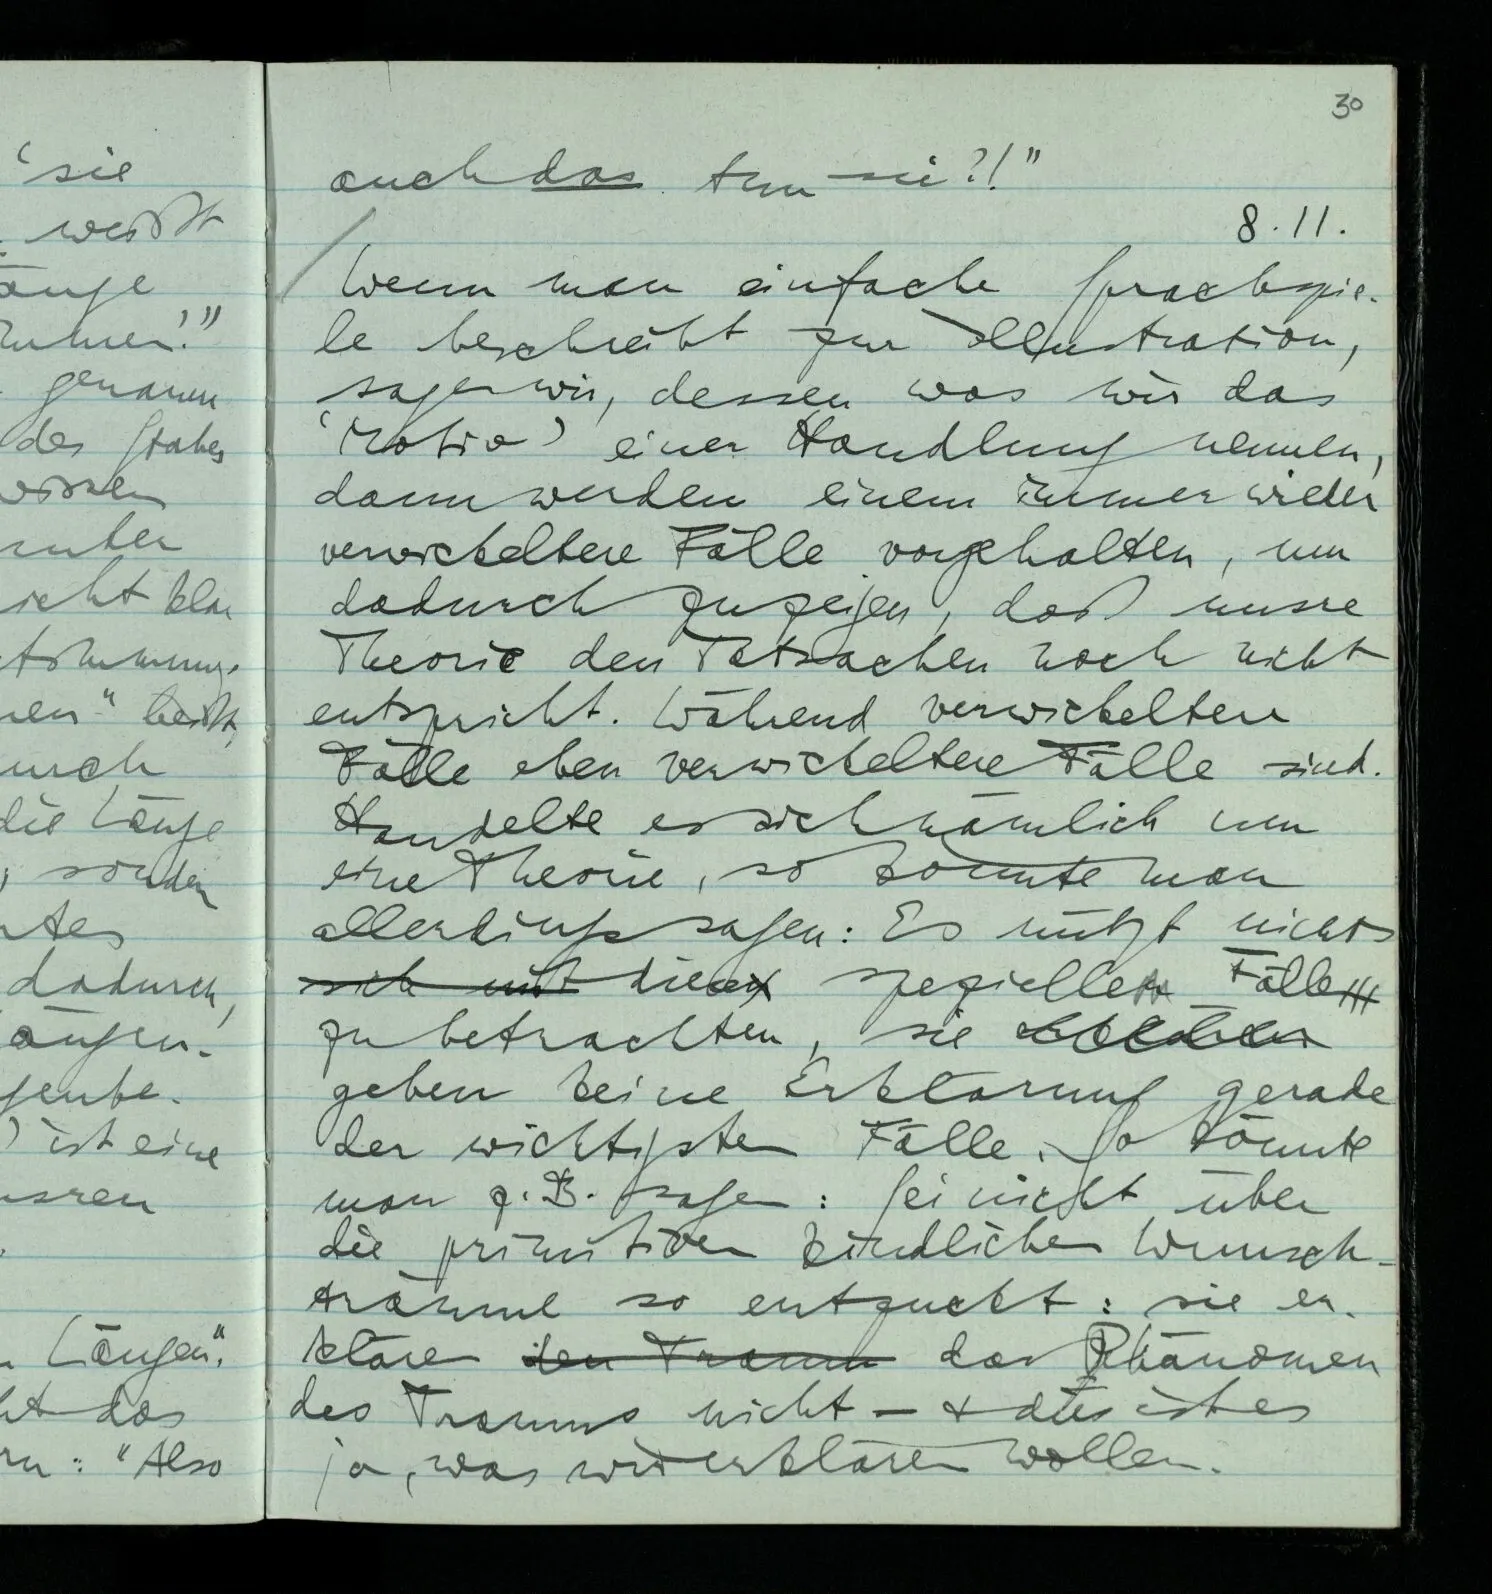 ‘sie
weißt
änge
immer.’”
genauen
des Stabes
wissen
unter
nicht klar
stimmung.
nen” heißt,
urch
die Länge
, sondern
ntes
dadurch,
ängen.
genbe-
’ ist eine
unsren
n Längen”.
ht das
rn: “Also
30
auch das tun sie?!”
8.11.
/ Wenn man einfache Sprachspie-
le beschreibt zur Illustration,
sagen wir, dessen was wir das
‘Motiv’ einer Handlung nennen,
dann werden einem immer wieder
verwickeltere Fälle vorgehalten, um
dadurch zu zeigen, daß unsre
Theorie den Tatsachen noch nicht
entspricht. Während verwickeltere
Fälle eben verwickeltere Fälle sind.
Handelte es sich nämlich um
eine Theorie, so könnte man
allerdings sagen: Es nützt nichts
sich mit diese speziellen Fälle
zu betrachten, sie
geben keine Erklärung gerade
der wichtigsten Fälle. So könnte
man z.B. sagen: Sei nicht über
die primitiven kindlichen Wunsch-
träume so entzückt: sie er-
klären den Traum das Phänomen
des Traums nicht – & dies ist es
ja, was wir erklären wollen.